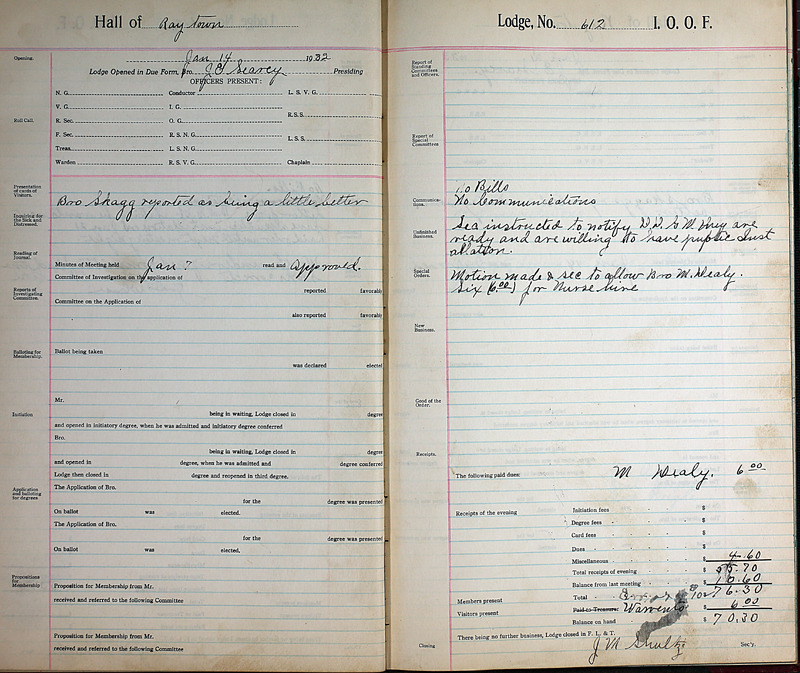 Hall of Raytown
Opening.
Jan 14 1932
Lodge Opened in Due Form, Bro. J O Searcy Presiding
OFFICERS PRESENT:
N. G. Conductor L. S. V. G.
V. G. I. G.
R.S.S.
Roll Call.
R. Sec. O. G.
F. Sec. R. S. N. G.
L. S. S.
Treas. L. S. N. G.
Warden R. S. V. G. Chaplain
Presentation of cards of Visitors.
Bro Skagg reported as being a little better
Inquiring for the Sick and Distressed.
Reading of Journal.
Minutes of Meeting held Jan 7 read and approved.
Committee of Investigation on the application of
Reports of Investigating Committee.
reported favorabl
Committee on the Application of
also reported favorabl
Balloting for Membership.
Ballot being taken
was declared elected
Mr.
Initiation
being in waiting, Lodge closed in degree
and opened in initiatory degree, when he was admitted and initiatory degree conferred
Bro.
being in waiting, Lodge closed in degree
and opened in degree, when he was admitted and degree conferred
Lodge then closed in degree and reopened in third degree.
Application and balloting for degrees
The Application of Bro.
for the degree was presented
On ballot was elected.
The Application of Bro.
for the degree was presented
On ballot was elected.
Propositions for Membership
Proposition for Membership from Mr.
received and referred to the following Committee
Proposition for Membership from Mr.
received and referred to the following Committee
Lodge, No. 612 I. O. O. F.
Report of Standing Committees and Officers.
Report of Special Committees
no Bills
Communications.
No Communications
Unfinished Business.
Sec instructed to notify D.D.G.M they are
ready and are willing to have public Inst
allation.
Special Orders.
Motion made & sec to allow Bro M. Dealy.
Six (6.00) for Nurse hire
New Business.
Good of the Order.
Receipts.
The following paid dues: M Dealy. 6 00
Receipts of the evening Initiation fees $
Degree fees $
Card fees $
Dues $
Miscellaneous $ 4.60
Total receipts of evening $
Balance from last meeting $
Members present Total $ 76.30
Visitors present Paid to Treasurer: Warrents $ 6.00
Balance on hand $ 70.30
There being no further business, Lodge closed in F. L. & T.
Closing J M Shultz Sec'y.